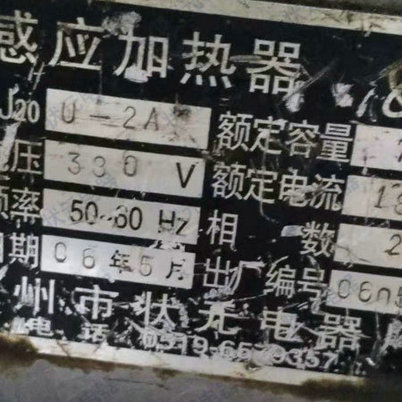 感应加热器
J20 U-2A 额定容量
压 330 V 额定电流 18
频率 50-60 Hz 相数 2
日期 06年5月 出厂编号 0605
州市状元电器
电话 0519-6579357